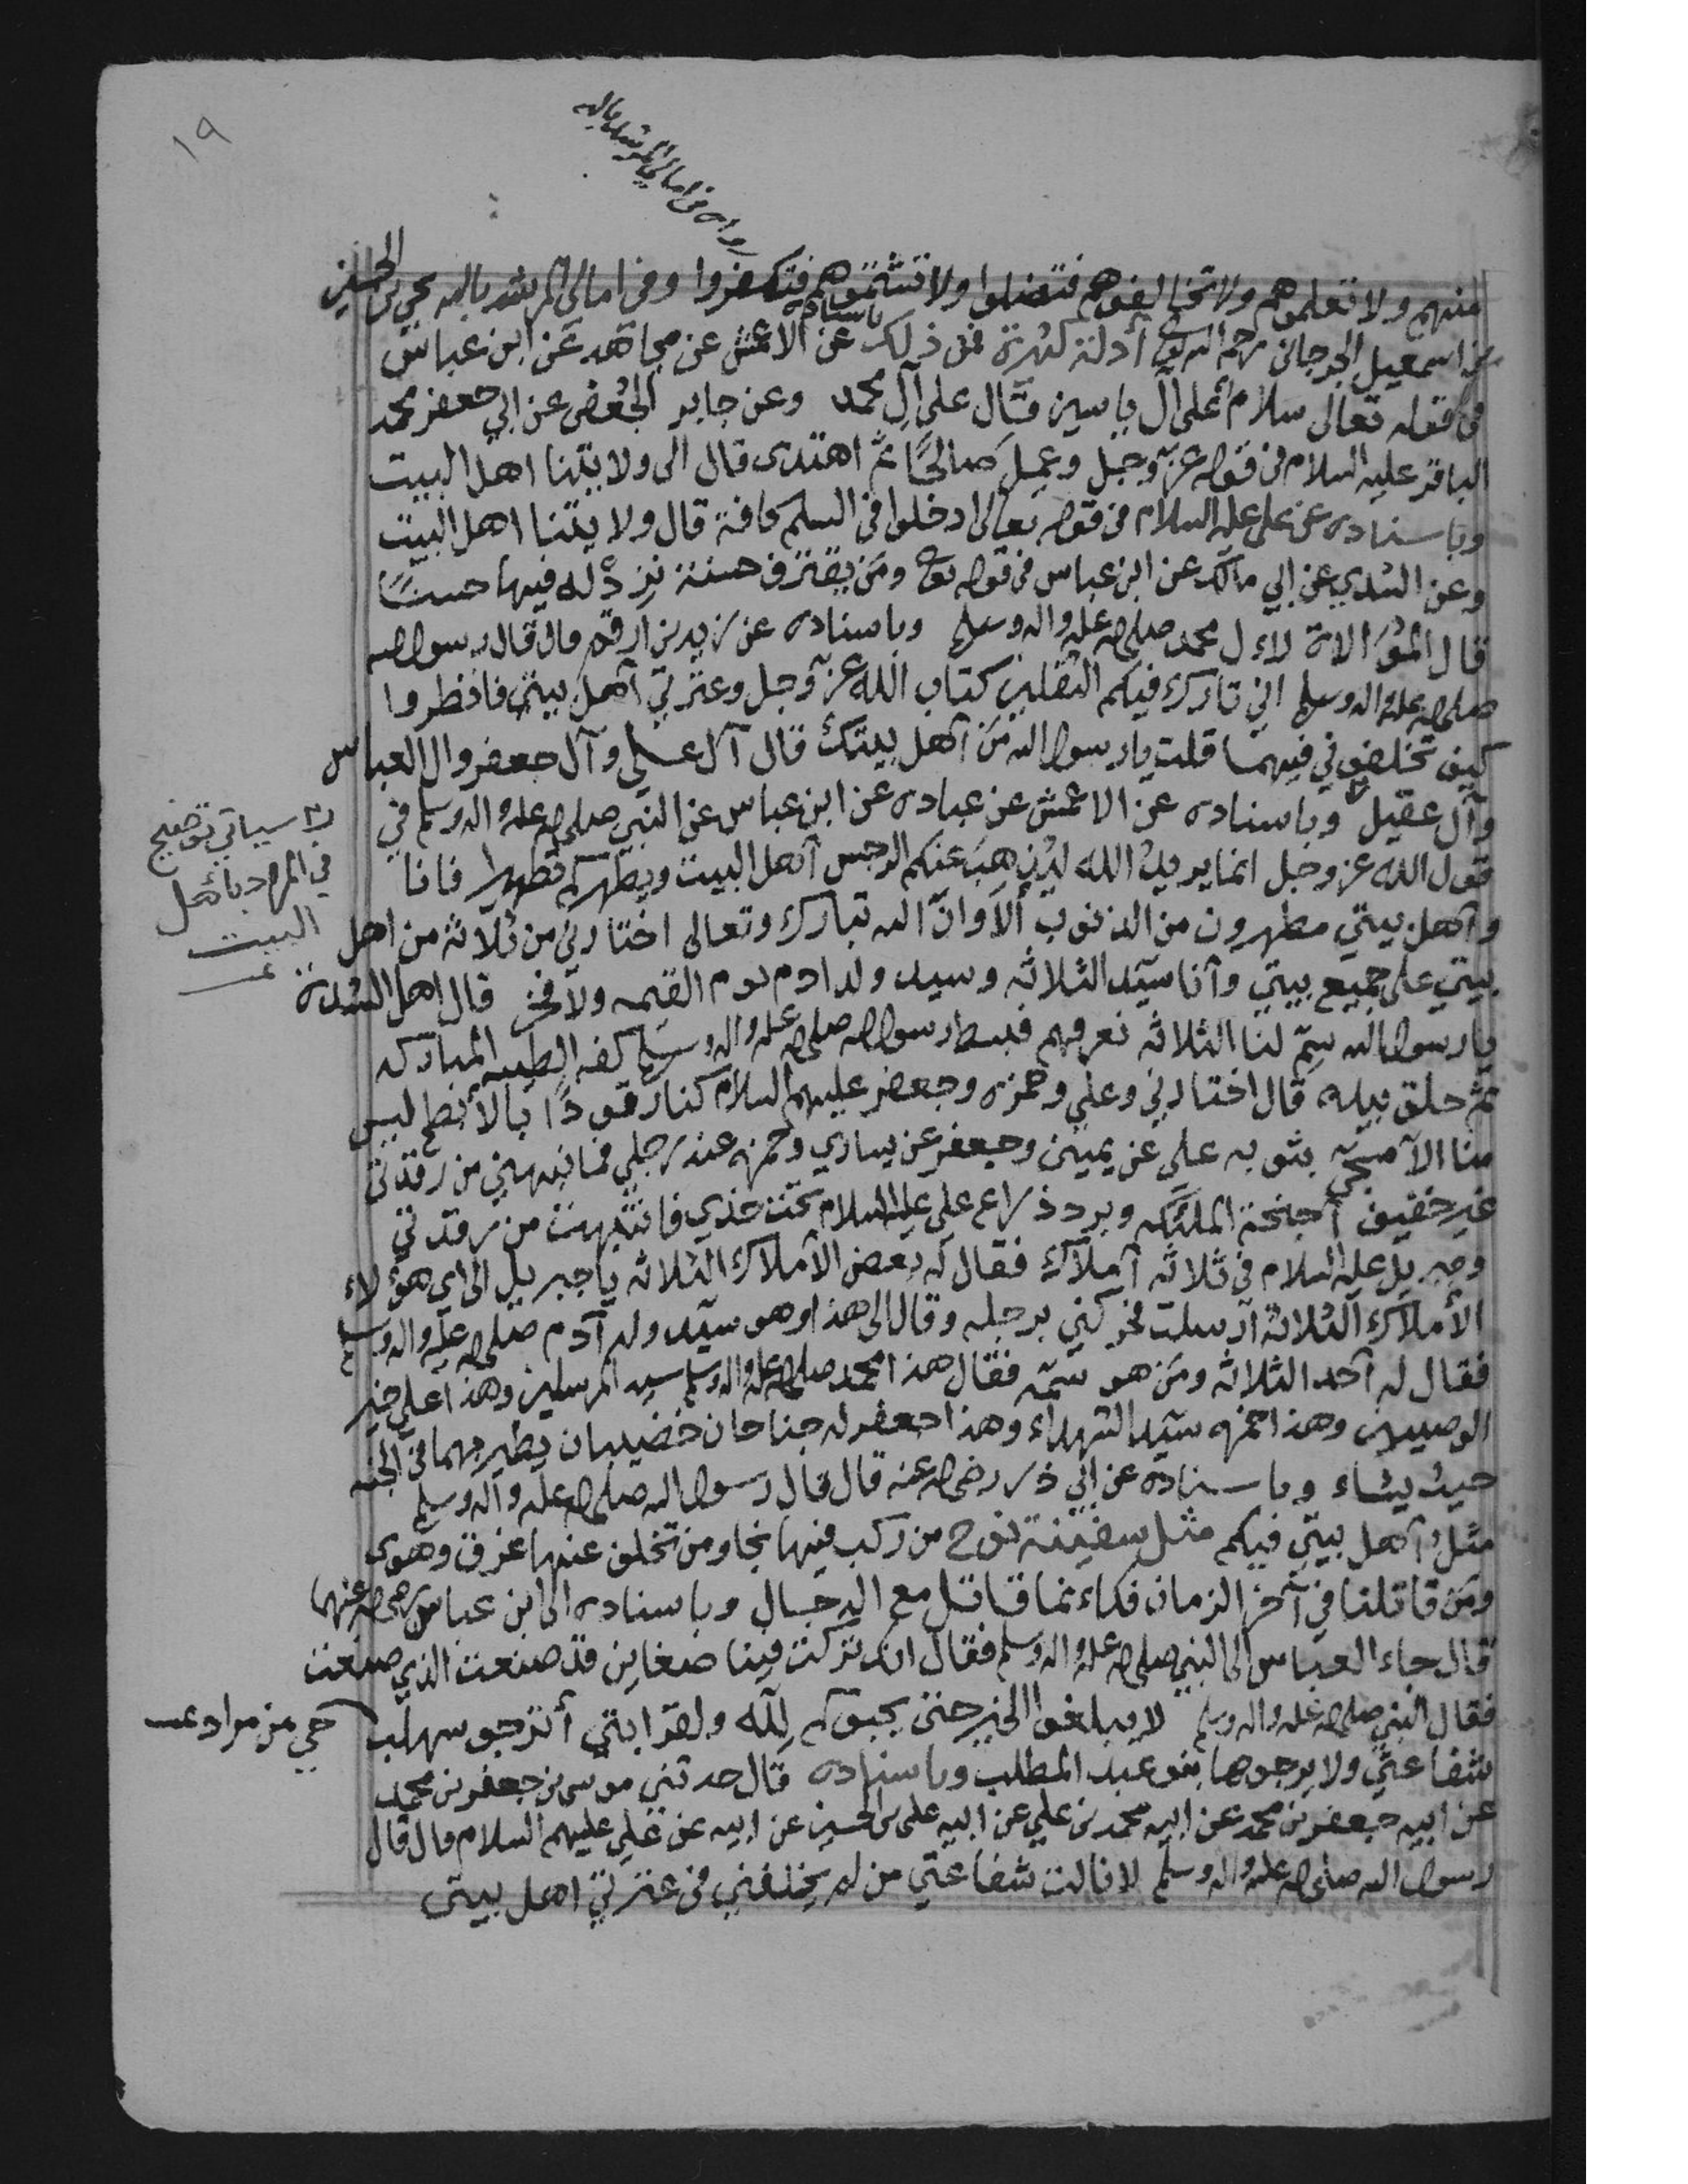 ١٩
رواه في امالي المرشد بالله
منهم ولا تعلموهم ولا تخالفوهم فتضلوا ولا تشتموهم فتكفروا وفي امالي المرشد بالله يحيى بن الحسين
بن اسمعيل الجرجاني رحمه الله تعالى أدلة كثيرة فمن ذلك باسناده عن الاعمش عن مجاهد عن ابن عباس
في قوله تعالى سلام على آل ياسين قال على آل محمد وعن جابر الجعفي عن ابي جعفر محمد
الباقر عليه السلام في قوله عز وجل وعمل صالحًا ثم اهتدى قال الى ولايتنا اهل البيت
وباسناده عن علي عليه السلام في قوله تعالى ادخلوا في السلم كافة قال ولايتنا اهل البيت
وعن السدي عن ابي مالك عن ابن عباس في قوله تعالى ومن يقترف حسنة نزد له فيها حسنًا
قال المؤالاة لاءل محمد صلى الله عليه واله وسلم وباسناده عن زيد بن ارقم قال قال رسول الله
صلى الله عليه واله وسلم اني تارك فيكم الثقلين كتاب الله عز وجل وعترتي أهل بيتي فانظروا
كيف تخلفوني فيهما قلت يا رسول الله من أهل بيتك قال آل علي وآل جعفر وال العباس
وآل عقيل وباسناده عن الاعمش عن عباده عن ابن عباس عن النبي صلى الله عليه واله وسلم في
قول الله عز وجل انما يريد الله ليذهب عنكم الرجس أهل البيت ويطهركم تطهيرا فانا
وأهل بيتي مطهرون من الذنوب ألا وان الله تبارك وتعالى اختارني من ثلاثة من اهل
بيتي على جميع بيتي وأنا سيد الثلاثه وسيد ولد ادم يوم القيمه ولا فخر قال اهل السدة
يا رسول الله سم لنا الثلاثه نعرفهم فبسط رسول الله صلى الله عليه واله وسلم كفه الطيبه المباركه
ثم حلق بيده قال اختارني وعلي وحمزه وجعفر عليهم السلام كنا رقودًا بالأبطح ليس
منا الا مسجى بثوبه علي عن يميني وجعفر عن يساري وحمزه عند رجلي فما نبهني من رقدتي
غير حفيف أجنحة الملئكه وبرد ذراع علي عليه السلام تحت خدي فانتبهت من رقدتي
وجبريل عليه السلام في ثلاثه أملاك فقال له بعض الاملاك الثلاثه يا جبريل الى اي هؤلاء
الأملاك الثلاثة أرسلت فحركني برجله وقال الى هذا وهو سيد ولد آدم صلى الله عليه واله وسلم
فقال له أحد الثلاثه ومن هو سمه فقال هذا محمد صلى الله عليه واله وسلم سيد المرسلين وهذا علي خير
الوصيين وهذا حمزه سيد الشهداء وهذا جعفر له جناحان خضيبان يطير بهما في الجنه
حيث يشاء وباسناده عن ابي ذر رضي الله عنه قال قال رسول الله صلى الله عليه وآله وسلم
مثل أهل بيتي فيكم مثل سفينة نوح من ركب فيها نجا ومن تخلف عنها غرق وهوى
ومن قاتلنا في آخر الزمان فكاءنما قاتل مع الدجال وباسناده الى ابن عباس رضي الله عنهما
قال جاء العباس الى النبي صلى الله عليه واله وسلم فقال انك تركت فينا ضغاين قد صنعت الذي صنعت
فقال النبي صلى الله عليه واله وسلم لا يبلغوا الخير حتى يحبوكم لله ولقرابتي أترجو سهلب
شفاعتي ولا يرجوها بنو عبد المطلب وباسناده قال حدثني موسى بن جعفر بن محمد
عن ابيه جعفر بن محمد عن ابيه محمد بن علي عن ابيه علي بن الحسين عن ابيه عن علي عليهم السلام قال قال
رسول الله صلى الله عليه واله وسلم لا نالت شفاعتي من لم يخلفني في عترتي اهل بيتي
سيأتي توضيح
في المراد بأهل
البيت
حي من مراد